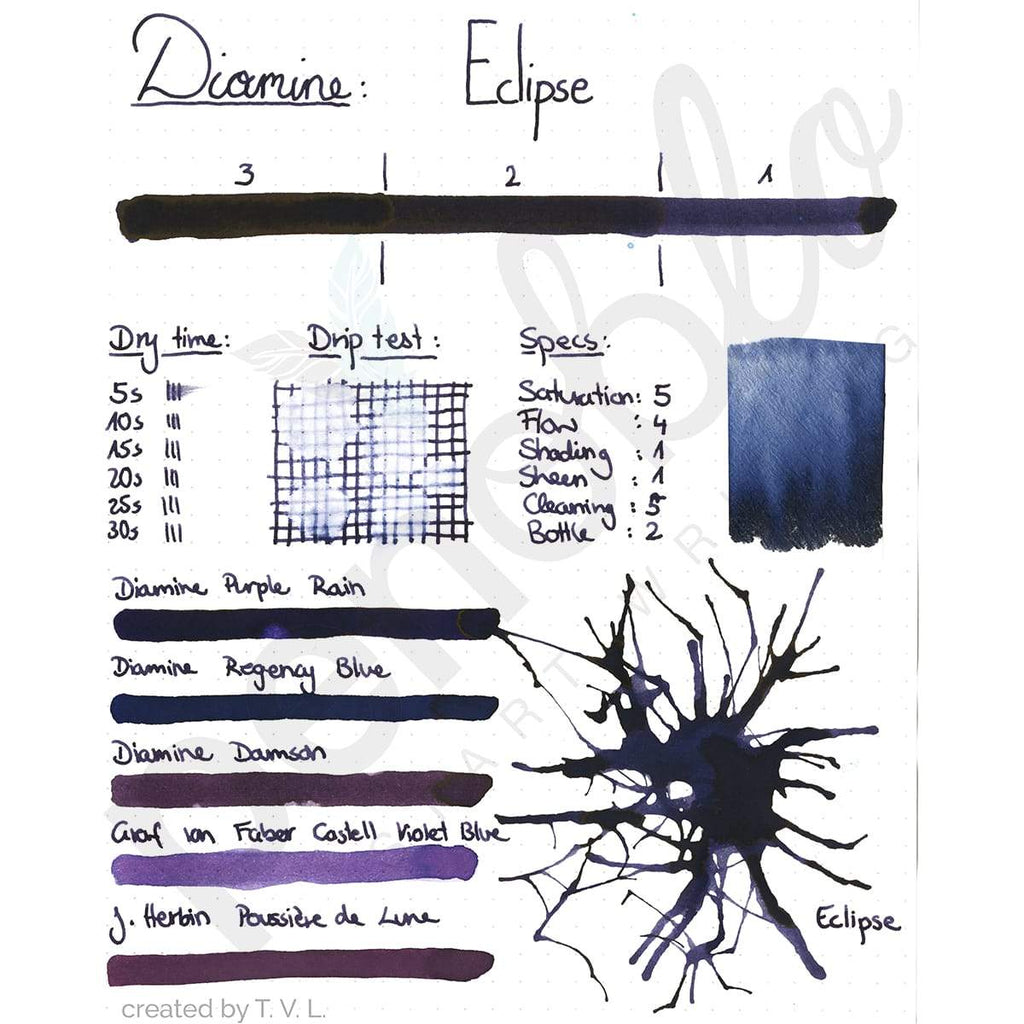 Diamine: Eclipse
3 2 1
Dry time: Drip test: Specs:
5s
10s
15s
20s
25s
30s
Saturation: 5
Flow : 4
Shading : 1
Sheen : 1
Cleaning : 5
Bottle : 2
Diamine Purple Rain
Diamine Regency Blue
Diamine Damson
Graf von Faber Castell Violet Blue
J. Herbin Poussière de Lune
Eclipse
created by T. V. L.
penoblo